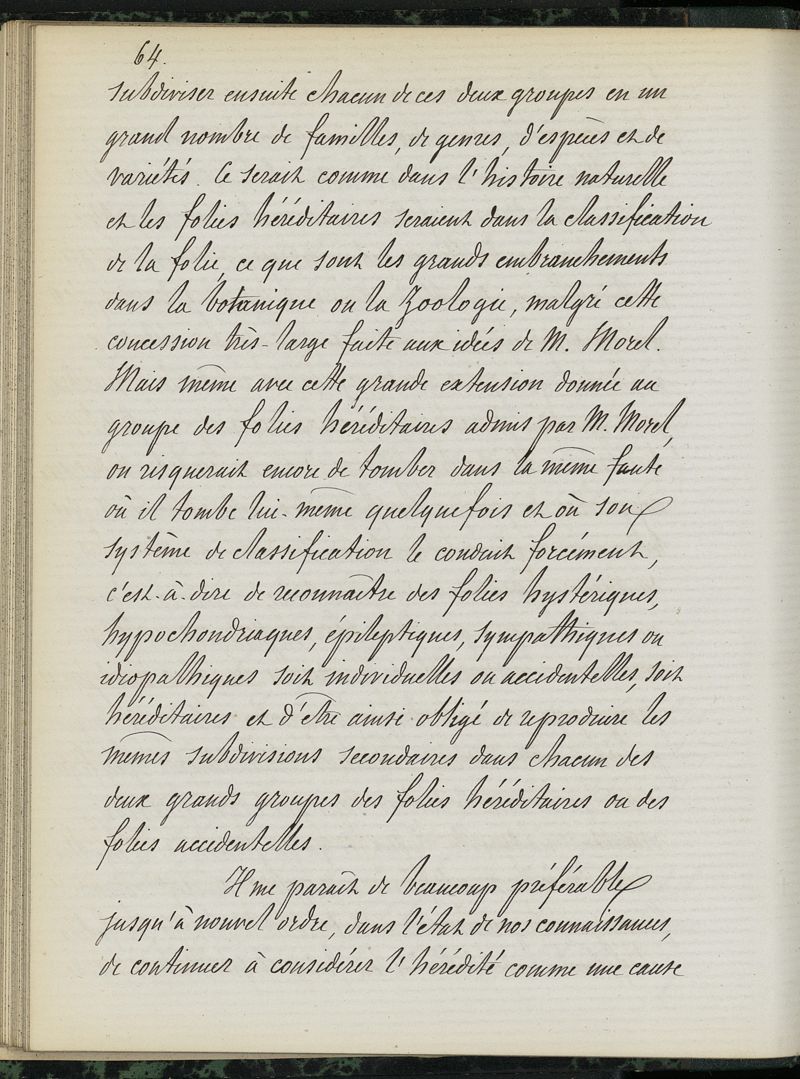 64.
subdiviser ensuite chacun de ces deux groupes en un
grand nombre de familles, de genres, d'espèces et de
variétés. Ce serait comme dans l'histoire naturelle
et les folies héréditaires seraient dans la classification
de la folie, ce que sont les grands embranchements
dans la botanique ou la Zoologie, malgré cette
concession très-large faite aux idées de M. Morel.
Mais même avec cette grande extension donnée au
groupe des folies héréditaires admis par M. Morel,
on risquerait encore de tomber dans la même faute
où il tombe lui-même quelquefois et où son
système de classification le conduit forcément,
c'est-à-dire de reconnaître des folies hystériques,
hypochondriaques, épileptiques, sympathiques ou
idiopathiques soit individuelles ou accidentelles, soit
héréditaires et d'être ainsi obligé de reproduire les
mêmes subdivisions secondaires dans chacun des
deux grands groupes des folies héréditaires ou des
folies accidentelles.
Il me paraît de beaucoup préférable
jusqu'à nouvel ordre, dans l'état de nos connaissances,
de continuer à considérer l'hérédité comme une cause